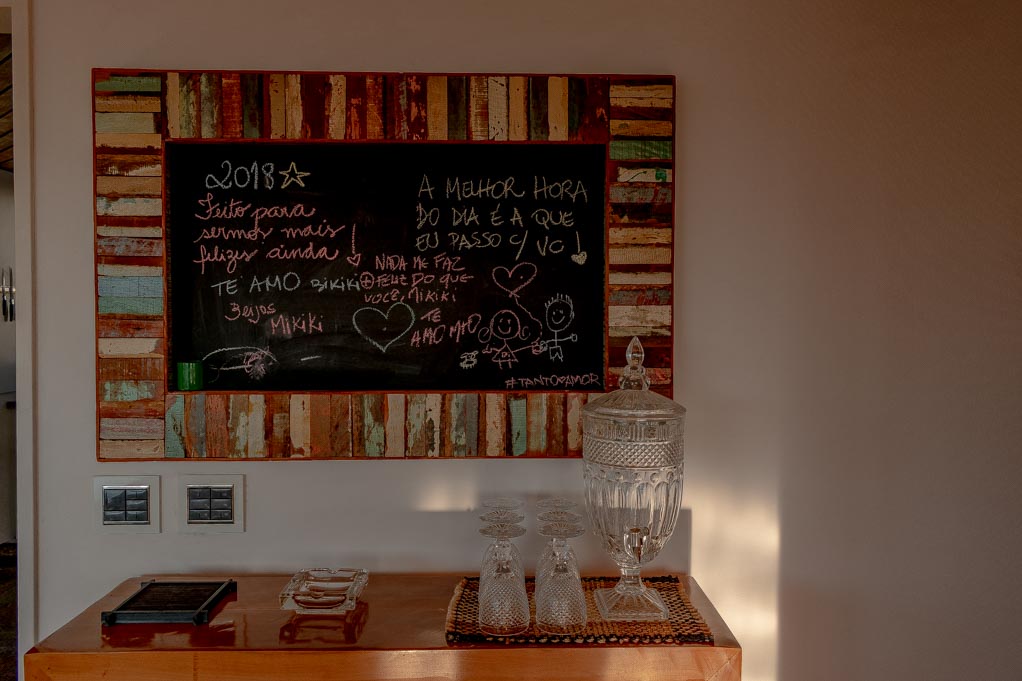 2018
Feito para
sermos mais
felizes ainda!
TE AMO BIKIKI
Beijos
MIKIKI
A MELHOR HORA
DO DIA É A QUE
EU PASSO C/ VC!
NADA ME FAZ
⊕ FELIZ DO QUE
VOCÊ, MIKIKI
TE
AMO MTO
#TANTOAMOR